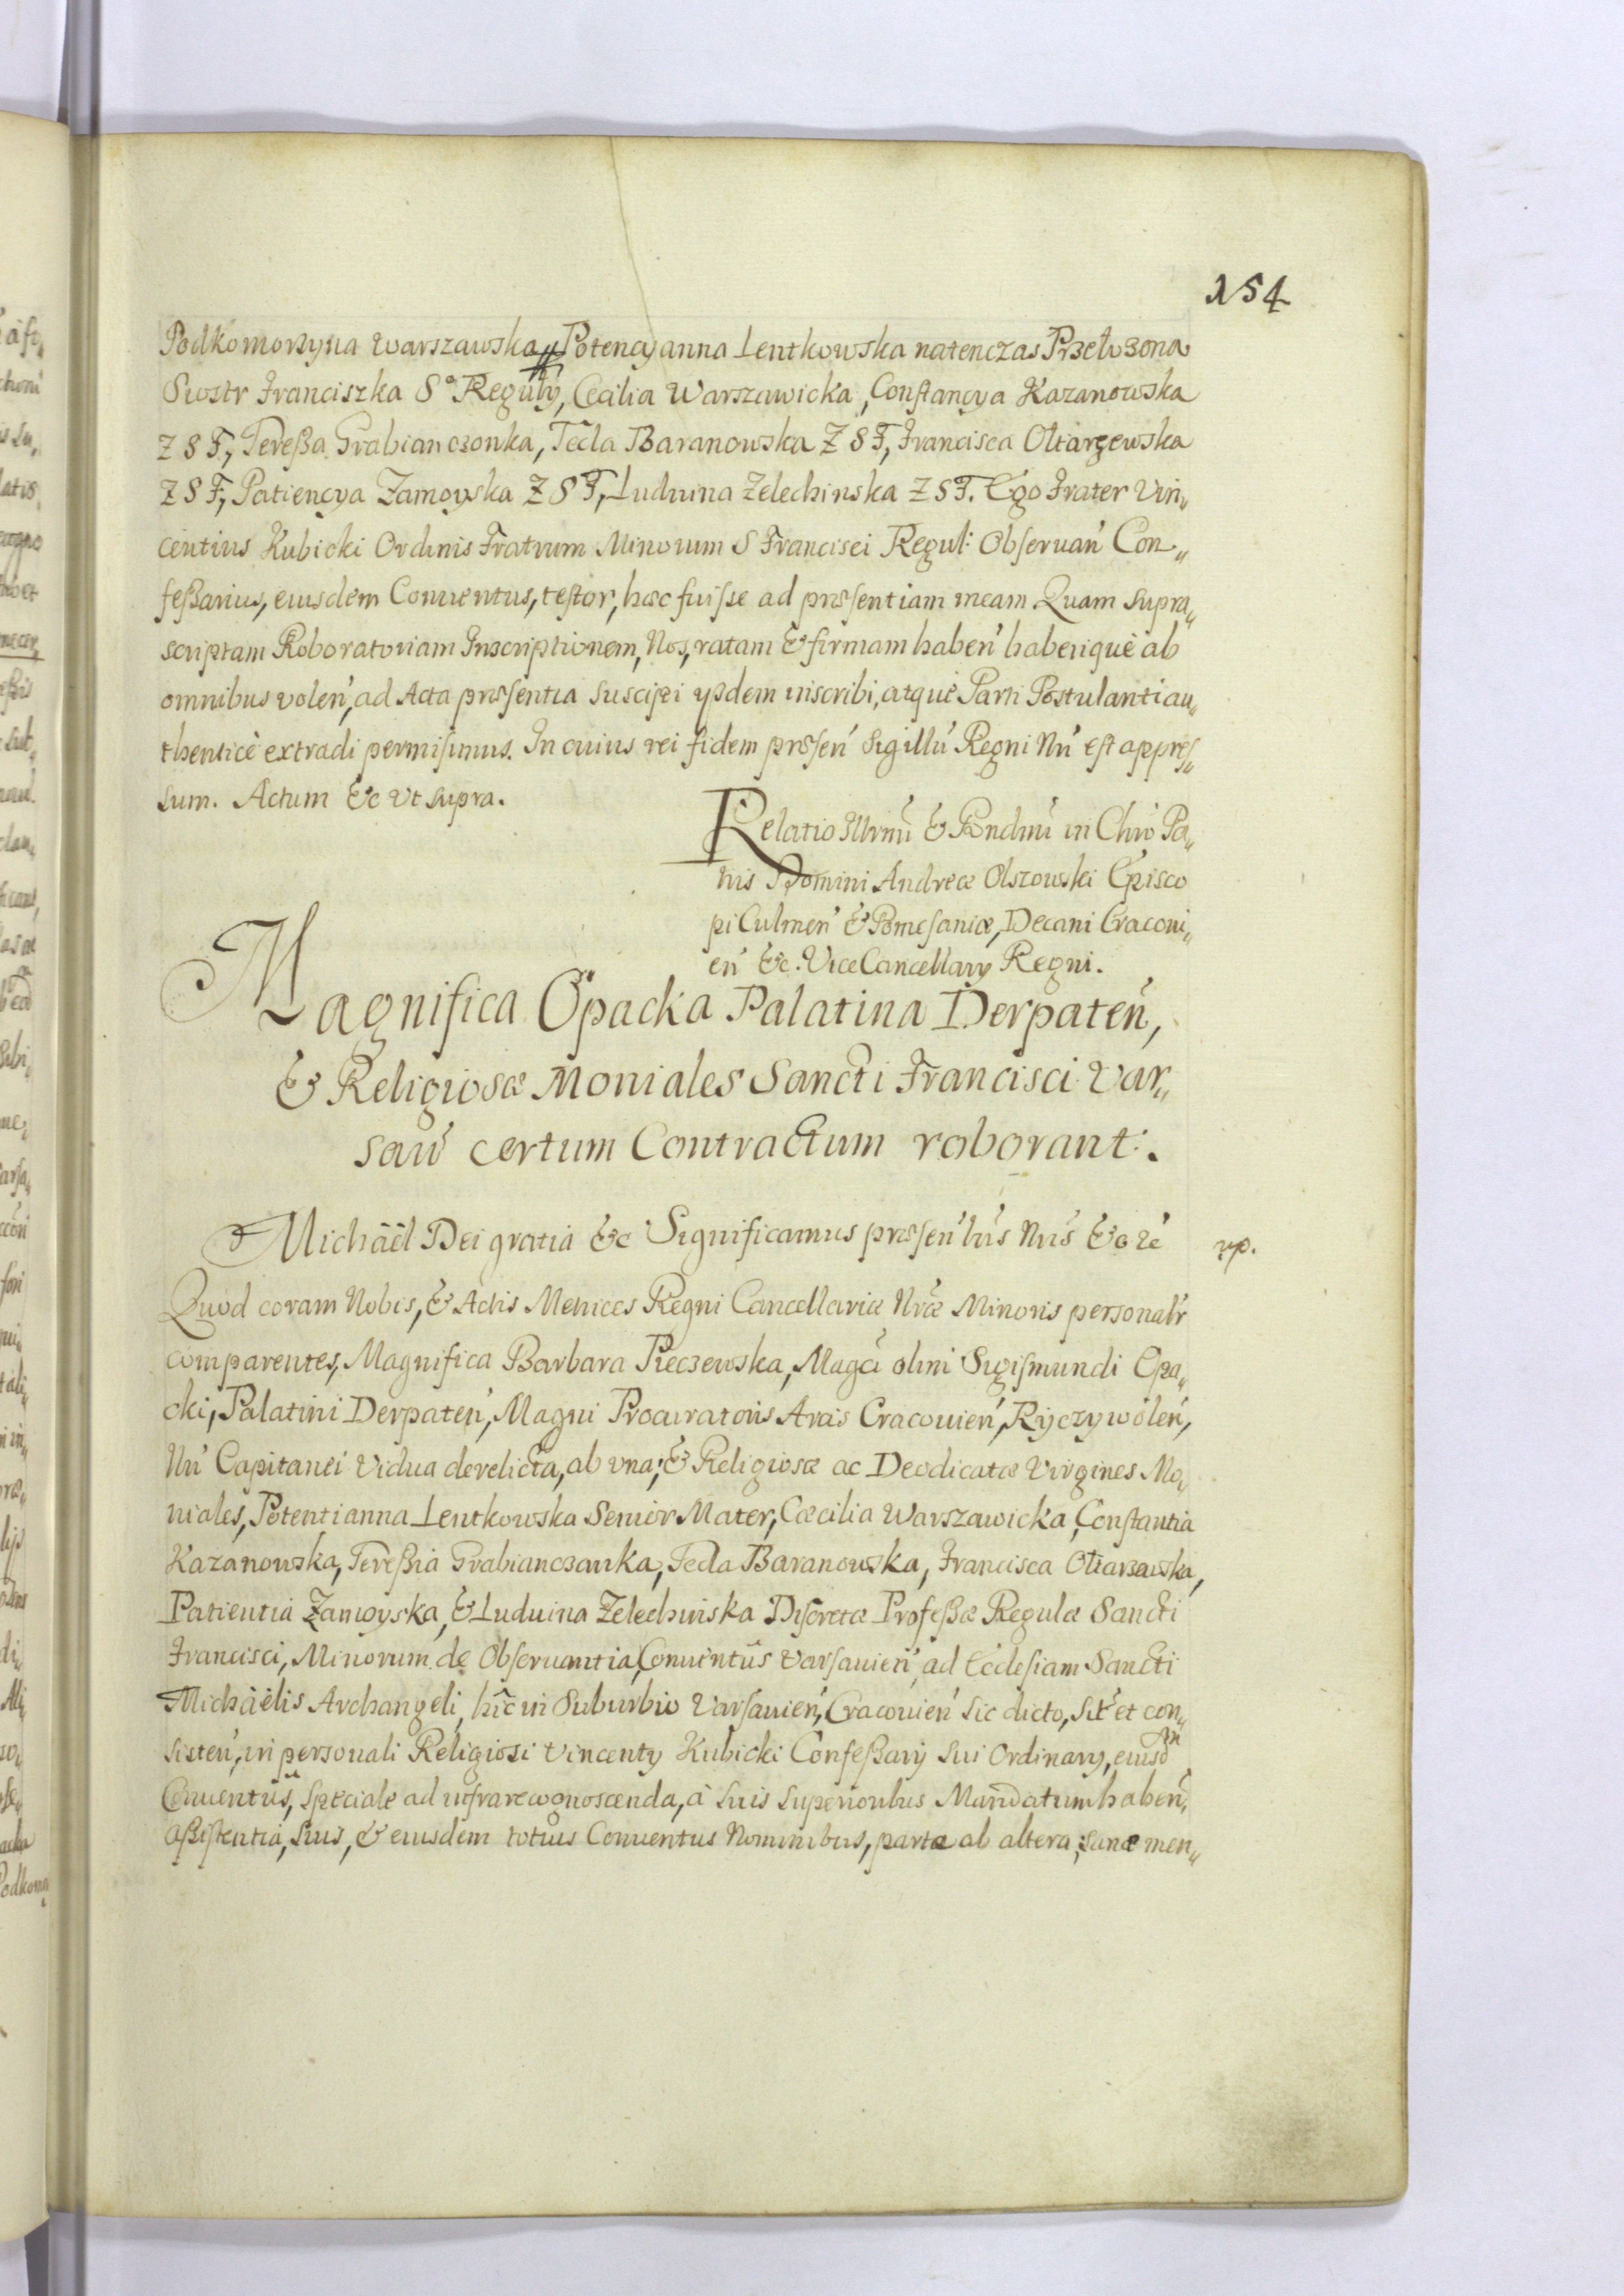 154
Podkomorzyna Warszawska, Potencyanna Lentkowska natenczas Przełożona
Siostr Franciszka S° Reguły, Cecilia Warszawicka, Constancya Kazanowska
Z S F, Tereßa Grabianczonka, Tecla Baranowska Z S F, Francisca Ołtarzewska
Z S F, Patiencya Zamoyska Z S F, Luduina Zelechinska Z S F. Ego Frater Vin„
centius Kubicki Ordinis Fratrum Minorum S Francisci Regul: Obseruań Con„
feßarius, eiusdem Conuentus, testor, hæc fuisse ad præsentiam meam Quam supra„
scriptam Roboratoriam Inscriptionem, Nos, ratam & firmam habeń haberiquè ab
omnibus voleń, ad Acta præsentia suscipi ysdem inscribi, atquè Parti Postulanti au„
thenticè extradi permisimus. In cuius rei fidem præseń Sigillú Regni Nrí est appres„
sum. Actum &c Vt supra.
Relatio Illrmi & Rndmi in Chro Pa„
tris Domini Andreæ Olszowski Episco
pi Culmeń & Pomesaniæ, Decani Cracoui„
eń &c. ViceCancellary Regni.
Magnifica Opacka Palatina Derpateń,
& Religiosæ Moniales Sancti Francisci Var„
sau certum Contractum roborant:.
Michäel Dei gratia &c Significamus præseń lrís Nrís &c ze
rp.
Quòd coram Nobis, & Actis Metrices Regni Cancellariæ Nræ Minoris personalr
comparentes, Magnifica Barbara Reczewska, Magci olim Sigismundi Opa„
cki, Palatini Derpateń, Magni Procuratoris Arcis Cracouień, Ryczywoleń,
Nrí Capitanei Vidua derelicta, ab vna; & Religiosæ ac Deodicatæ Virgines Mo„
niales, Potentianna Lentkowska Senior Mater, Cæcilia Warszawicka, Constantia
Kazanowska, Tereßia Grabianczanka, Tecla Baranowska, Francisca Ołtarzewska,
Patientia Zamoyska, & Luduina Zelechinska Discretæ Profeßæ Regulæ Sancti
Francisci, Minorum de Obseruantia, Conuentus Varsauień, ad Ecclesiam Sancti
Michäelis Archangeli, hîc in Suburbio Varsauień, Cracouień sic dicto, Sit et con„
sisteń, in personali Religiosi Vincenty Kubicki Confeßarij sui Ordinarij, eiusdm
Conuentus, speciale ad infrarecognoscenda, à suis superioribus Mandatum habeń,
aßistentia, suis, & eiusdem totius Conuentus Nominibus, parte ab altera; sanæ men„